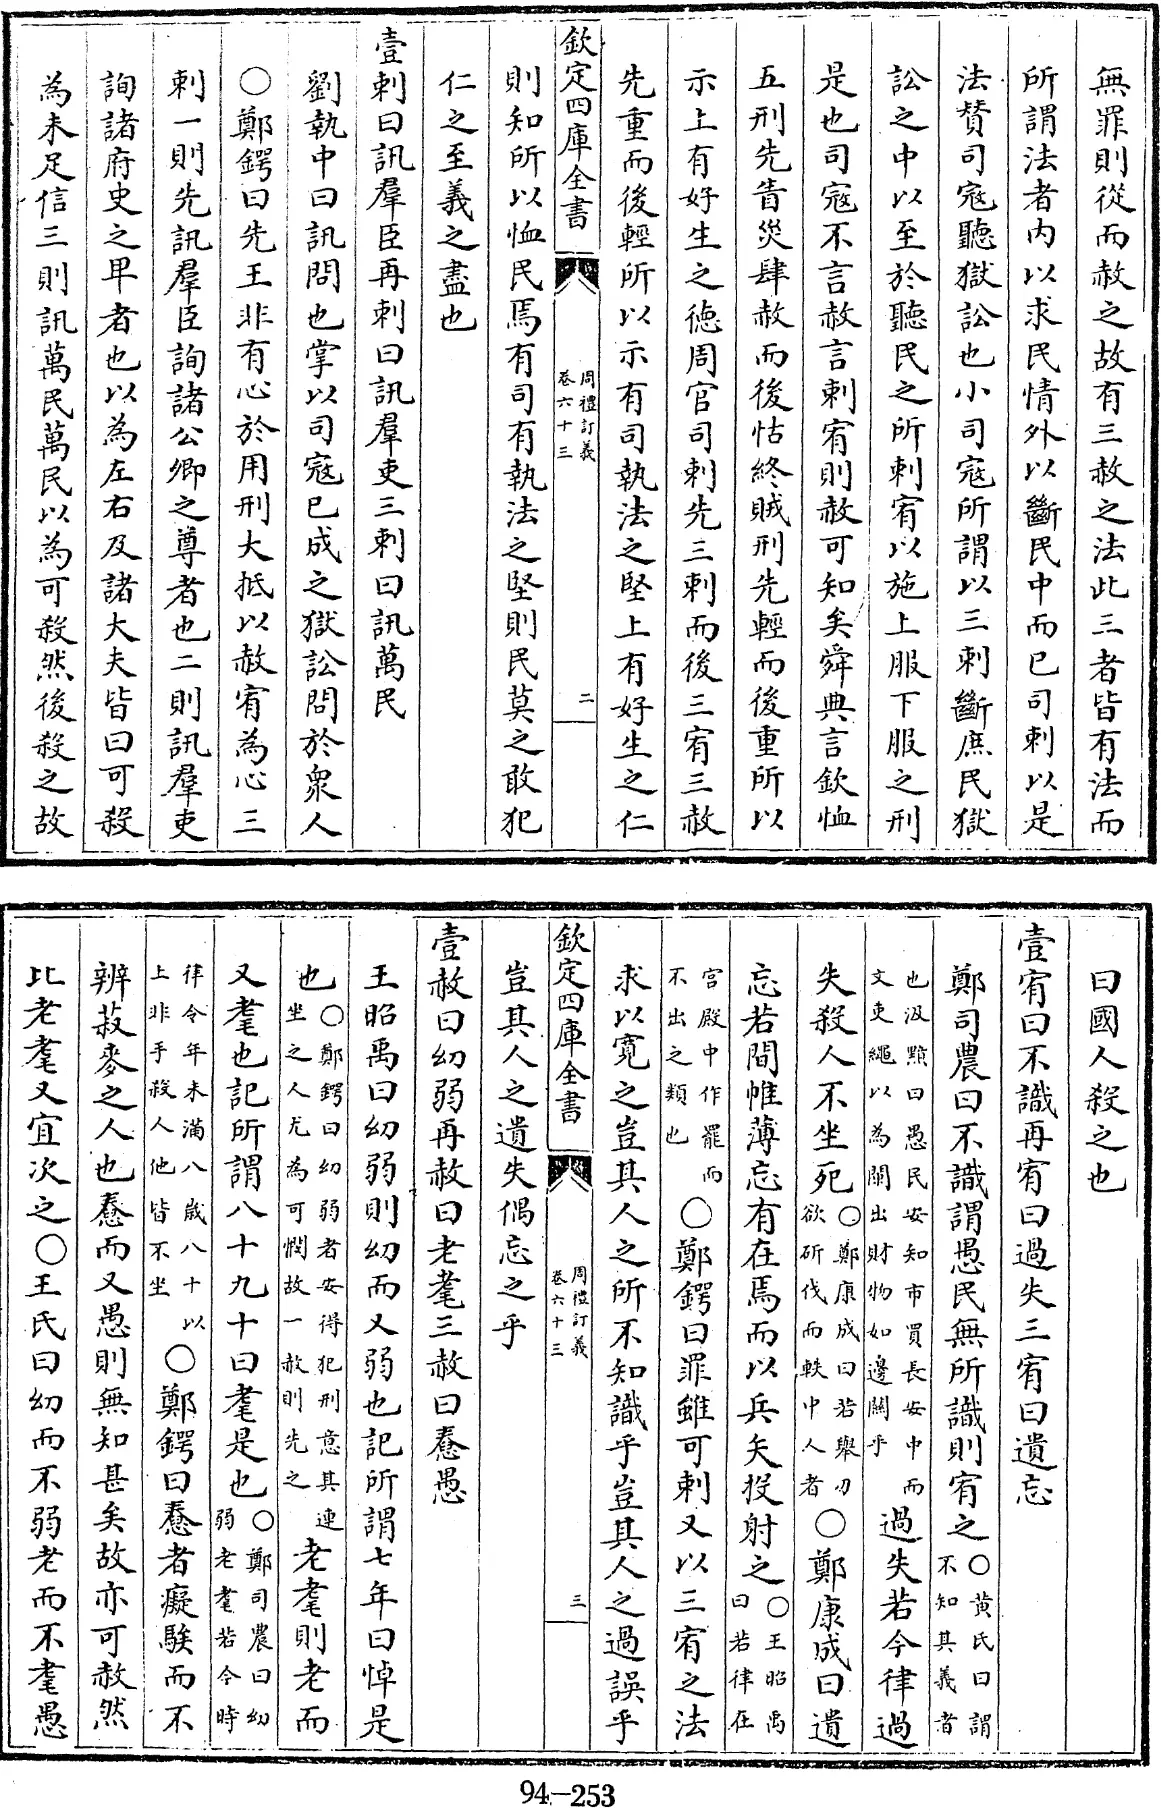 無罪則從而赦之故有三赦之法此三者皆有法而
所謂法者内以求民情外以斷民中而已司刺以是
法賛司寇聽獄訟也小司寇所謂以三刺斷庶民獄
訟之中以至於聽民之所刺宥以施上服下服之刑
是也司寇不言赦言刺宥則赦可知矣舜典言欽恤
五刑先眚災肆赦而後怙終賊刑先輕而後重所以
示上有好生之德周官司刺先三刺而後三宥三赦
先重而後輕所以示有司執法之堅上有好生之仁
欽定四庫全書 周禮訂義 卷六十三 二
則知所以恤民焉有司有執法之堅則民莫之敢犯
仁之至義之盡也
壹刺曰訊羣臣再刺曰訊羣吏三刺曰訊萬民
劉執中曰訊問也掌以司寇已成之獄訟問於衆人
○鄭鍔曰先王非有心於用刑大抵以赦宥為心三
刺一則先訊羣臣詢諸公卿之尊者也二則訊羣吏
詢諸府史之卑者也以為左右及諸大夫皆曰可殺
為未足信三則訊萬民萬民以為可殺然後殺之故
曰國人殺之也
壹宥曰不識再宥曰過失三宥曰遺忘
鄭司農曰不識謂愚民無所識則宥之○黄氏曰謂不知其義者
也汲黯曰愚民安知市買長安中而文吏繩以為闌出財物如邊關乎過失若今律過
失殺人不坐死○鄭康成曰若舉刃欲斫伐而軼中人者○鄭康成曰遺
忘若間帷薄忘有在焉而以兵矢投射之○王昭禹曰若律在
宫殿中作罷而不出之類也○鄭鍔曰罪雖可刺又以三宥之法
求以寛之豈其人之所不知識乎豈其人之過誤乎
欽定四庫全書 周禮訂義 卷六十三 三
豈其人之遺失偶忘之乎
壹赦曰幼弱再赦曰老耄三赦曰憃愚
王昭禹曰幼弱則幼而又弱也記所謂七年曰悼是
也○鄭鍔曰幼弱者安得犯刑意其連坐之人尤為可憫故一赦則先之老耄則老而
又耄也記所謂八十九十曰耄是也○鄭司農曰幼弱老耄若今時
律令年未滿八歳八十以上非手殺人他皆不坐○鄭鍔曰憃者癡騃而不
辨菽麥之人也憃而又愚則無知甚矣故亦可赦然
比老耄又宜次之○王氏曰幼而不弱老而不耄愚
94—253